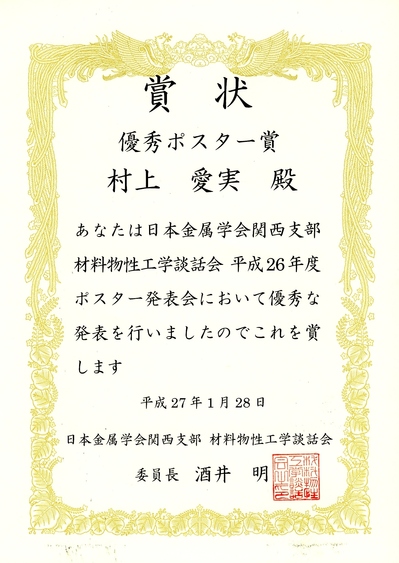 賞状
優秀ポスター賞
村上 愛実 殿
あなたは日本金属学会関西支部
材料物性工学談話会 平成26年度
ポスター発表会において優秀な
発表を行いましたのでこれを賞
します
平成27年1月28日
日本金属学会関西支部 材料物性工学談話会
委員長 酒井 明